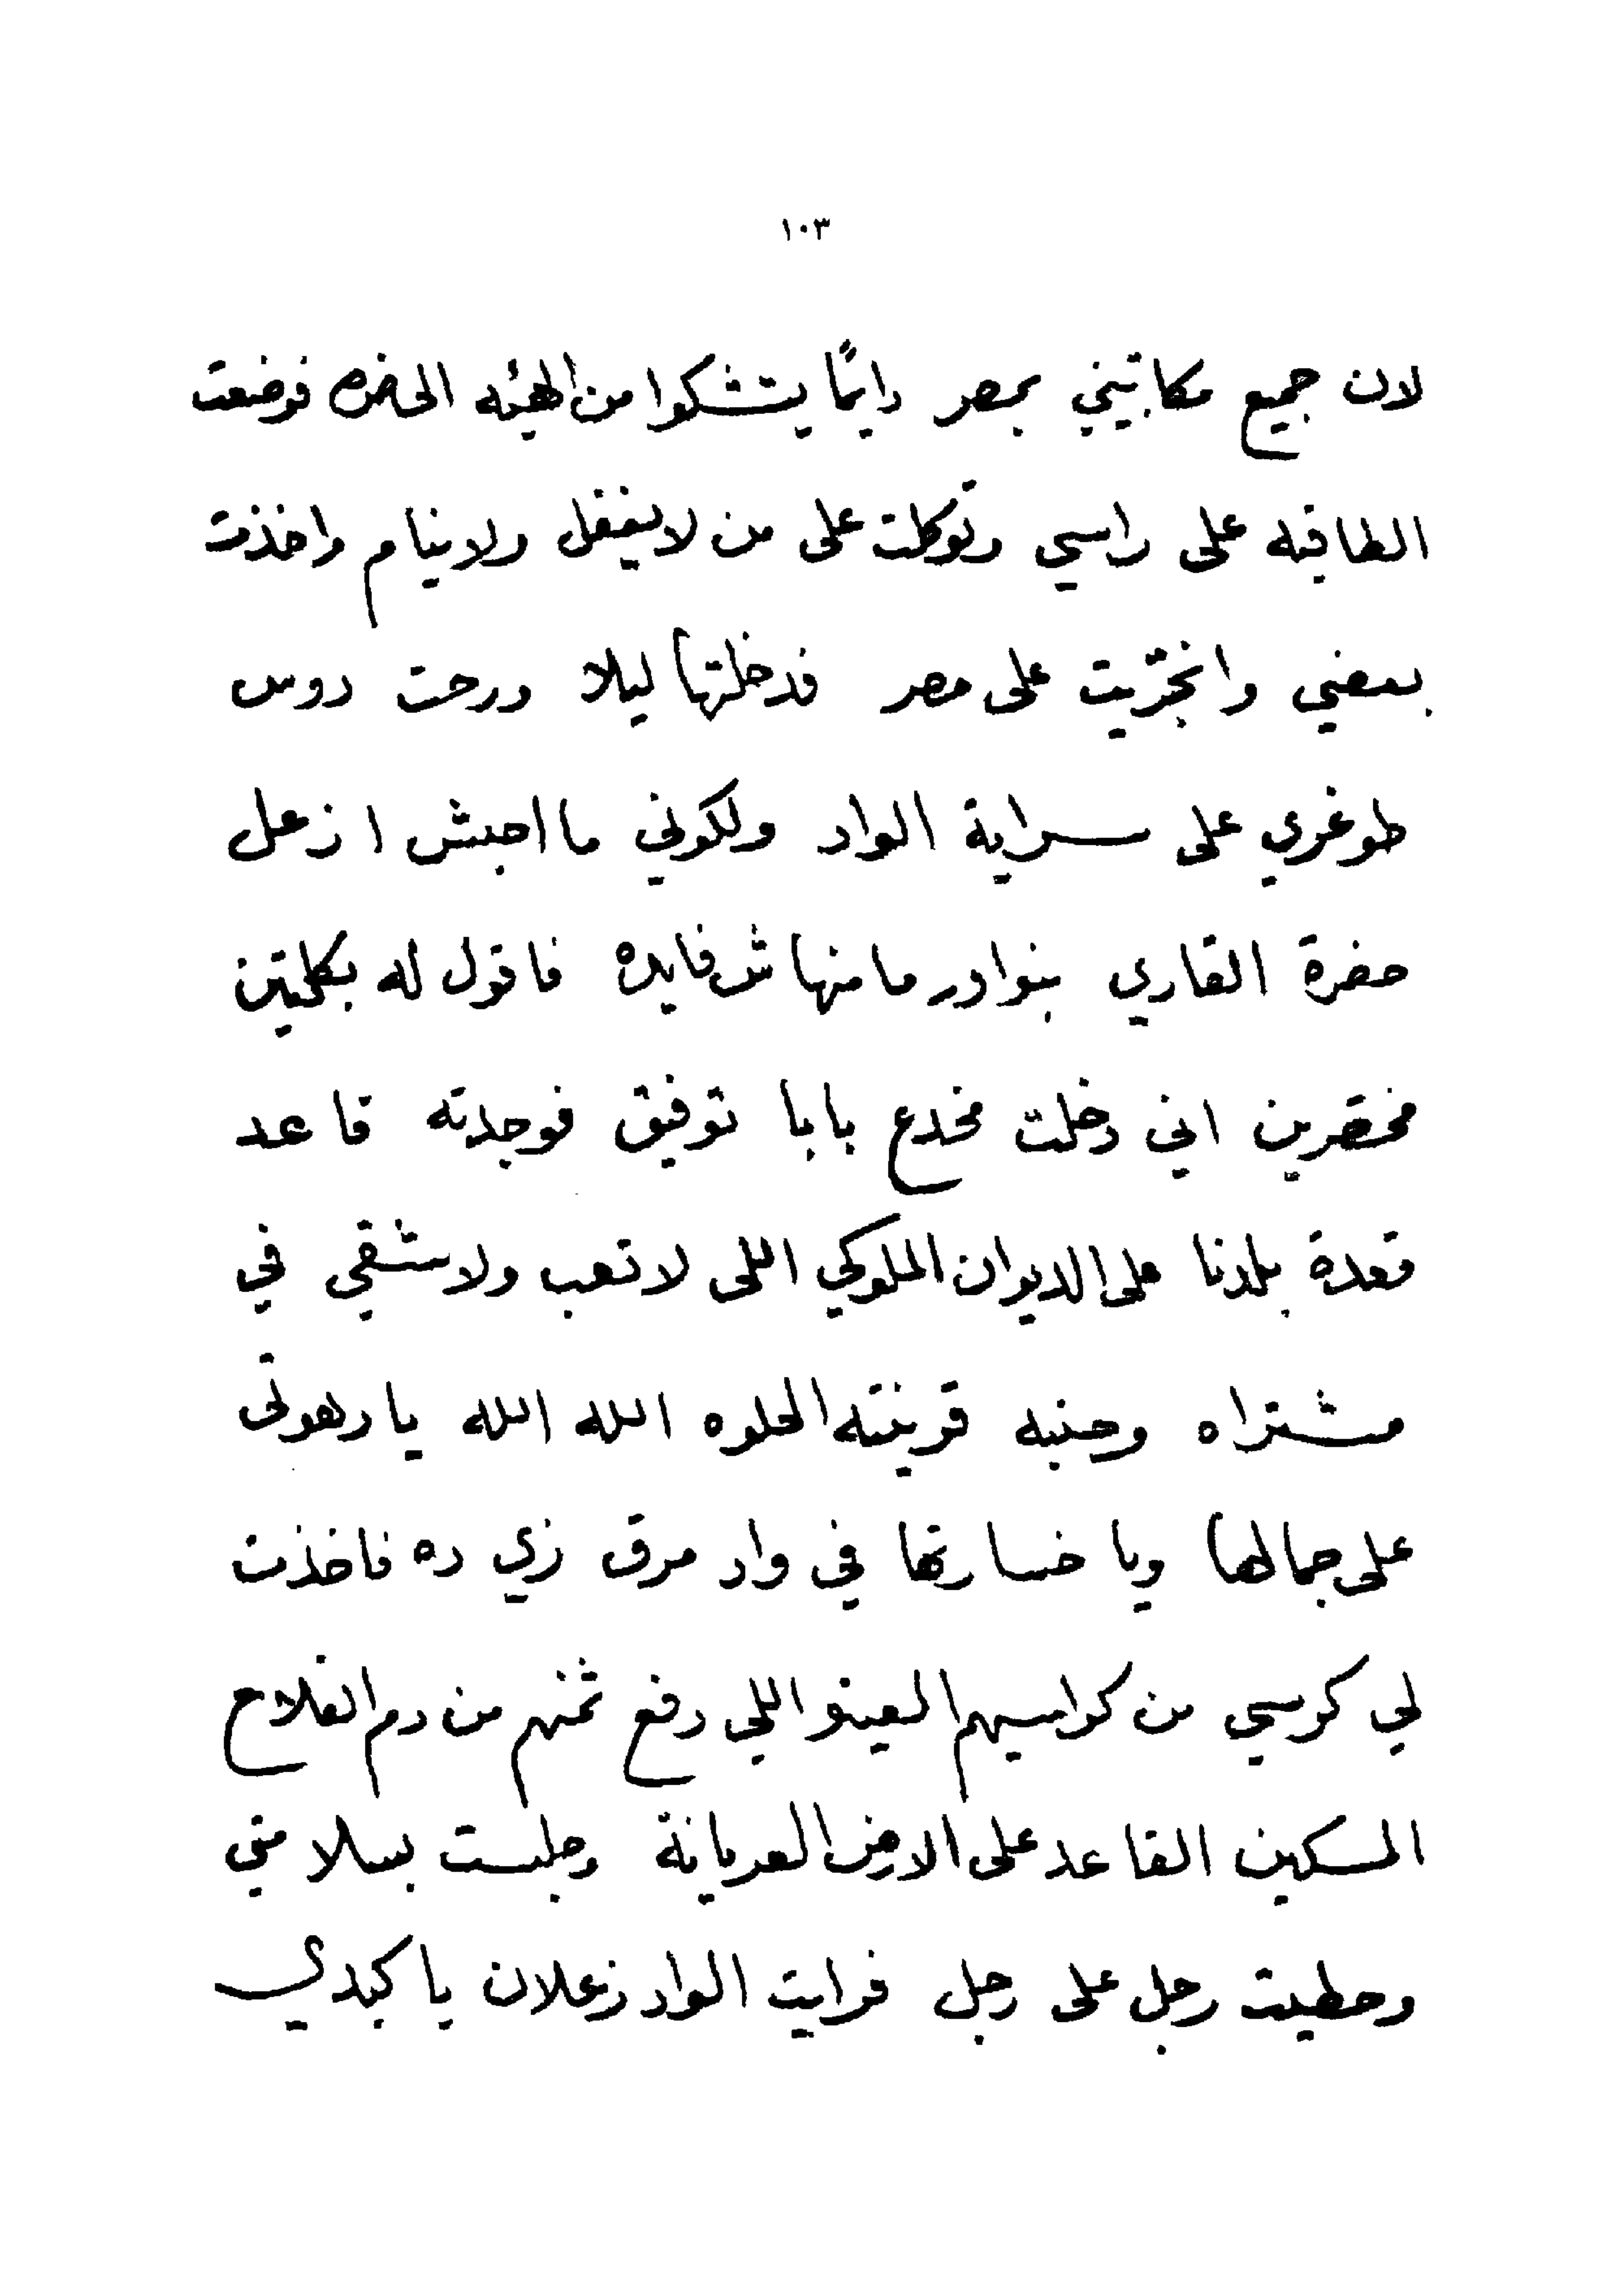 ١٠٣
لان جميع مكاتيبني بمصر دايمًا يتشكوا من الهيئه الحاضره فوضعت
الطاقيه على راسي وتوكلت على من لا يغفل ولا ينام واخذت
بعضي وانجرّيت على مصر فدخلتها ليلا ورحت دوس
طوغري على سراية الواد ولكوني ما احبش ازعل
حضرة القاري بنوادر ما منهاش فايده فاقول له بكلمتين
مختصرين اني دخلت مخدع بابا توفيق فوجدته قاعد
قعدة بلدنا على الديوان الملوكي اللى لا تعب ولا شقي في
مشتراه وجنبه قرينته الحلوه الله الله يا دهوتى
على جمالها ويا خسارتها في واد مرق زي ده فاخذت
لي كرسي من كراسيهم العينو اللي دفع ثمنهم من دم الفلاح
المسكين القاعد على الارض العريانة وجلست بسلامتي
وحطيت رجل على رجل فرايت الواد زعلان يا كبدي